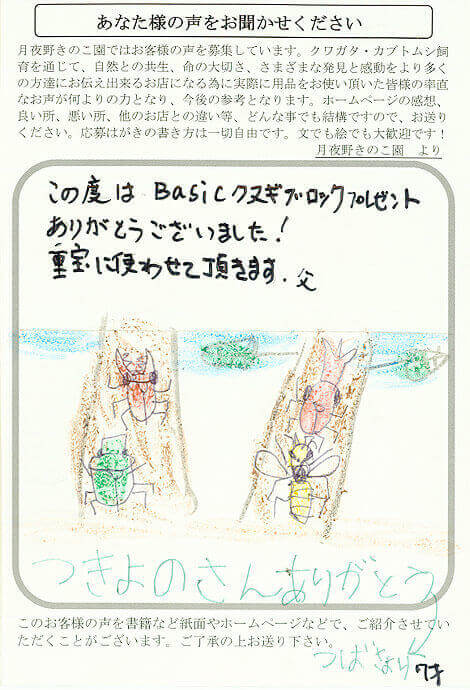 あなた様の声をお聞かせください
月夜野きのこ園ではお客様の声を募集しています。クワガタ・カブトムシ飼
育を通じて、自然との共生、命の大切さ、さまざまな発見と感動をより多く
の方達にお伝え出来るお店になる為に実際に用品をお使い頂いた皆様の率直
なお声が何よりの力となり、今後の参考となります。ホームページの感想、
良い所、悪い所、他のお店との違い等、どんな事でも結構ですので、お送り
ください。応募はがきの書き方は一切自由です。文でも絵でも大歓迎です！
月夜野きのこ園　より
この度は Basicクヌギブロックプレゼント
ありがとうございました！
重宝に使わせて頂きます. 父
つきよのさんありがとう
つばさより
7才
このお客様の声を書籍など紙面やホームページなどで、ご紹介させてい
ただくことがございます。ご了承の上お送り下さい。